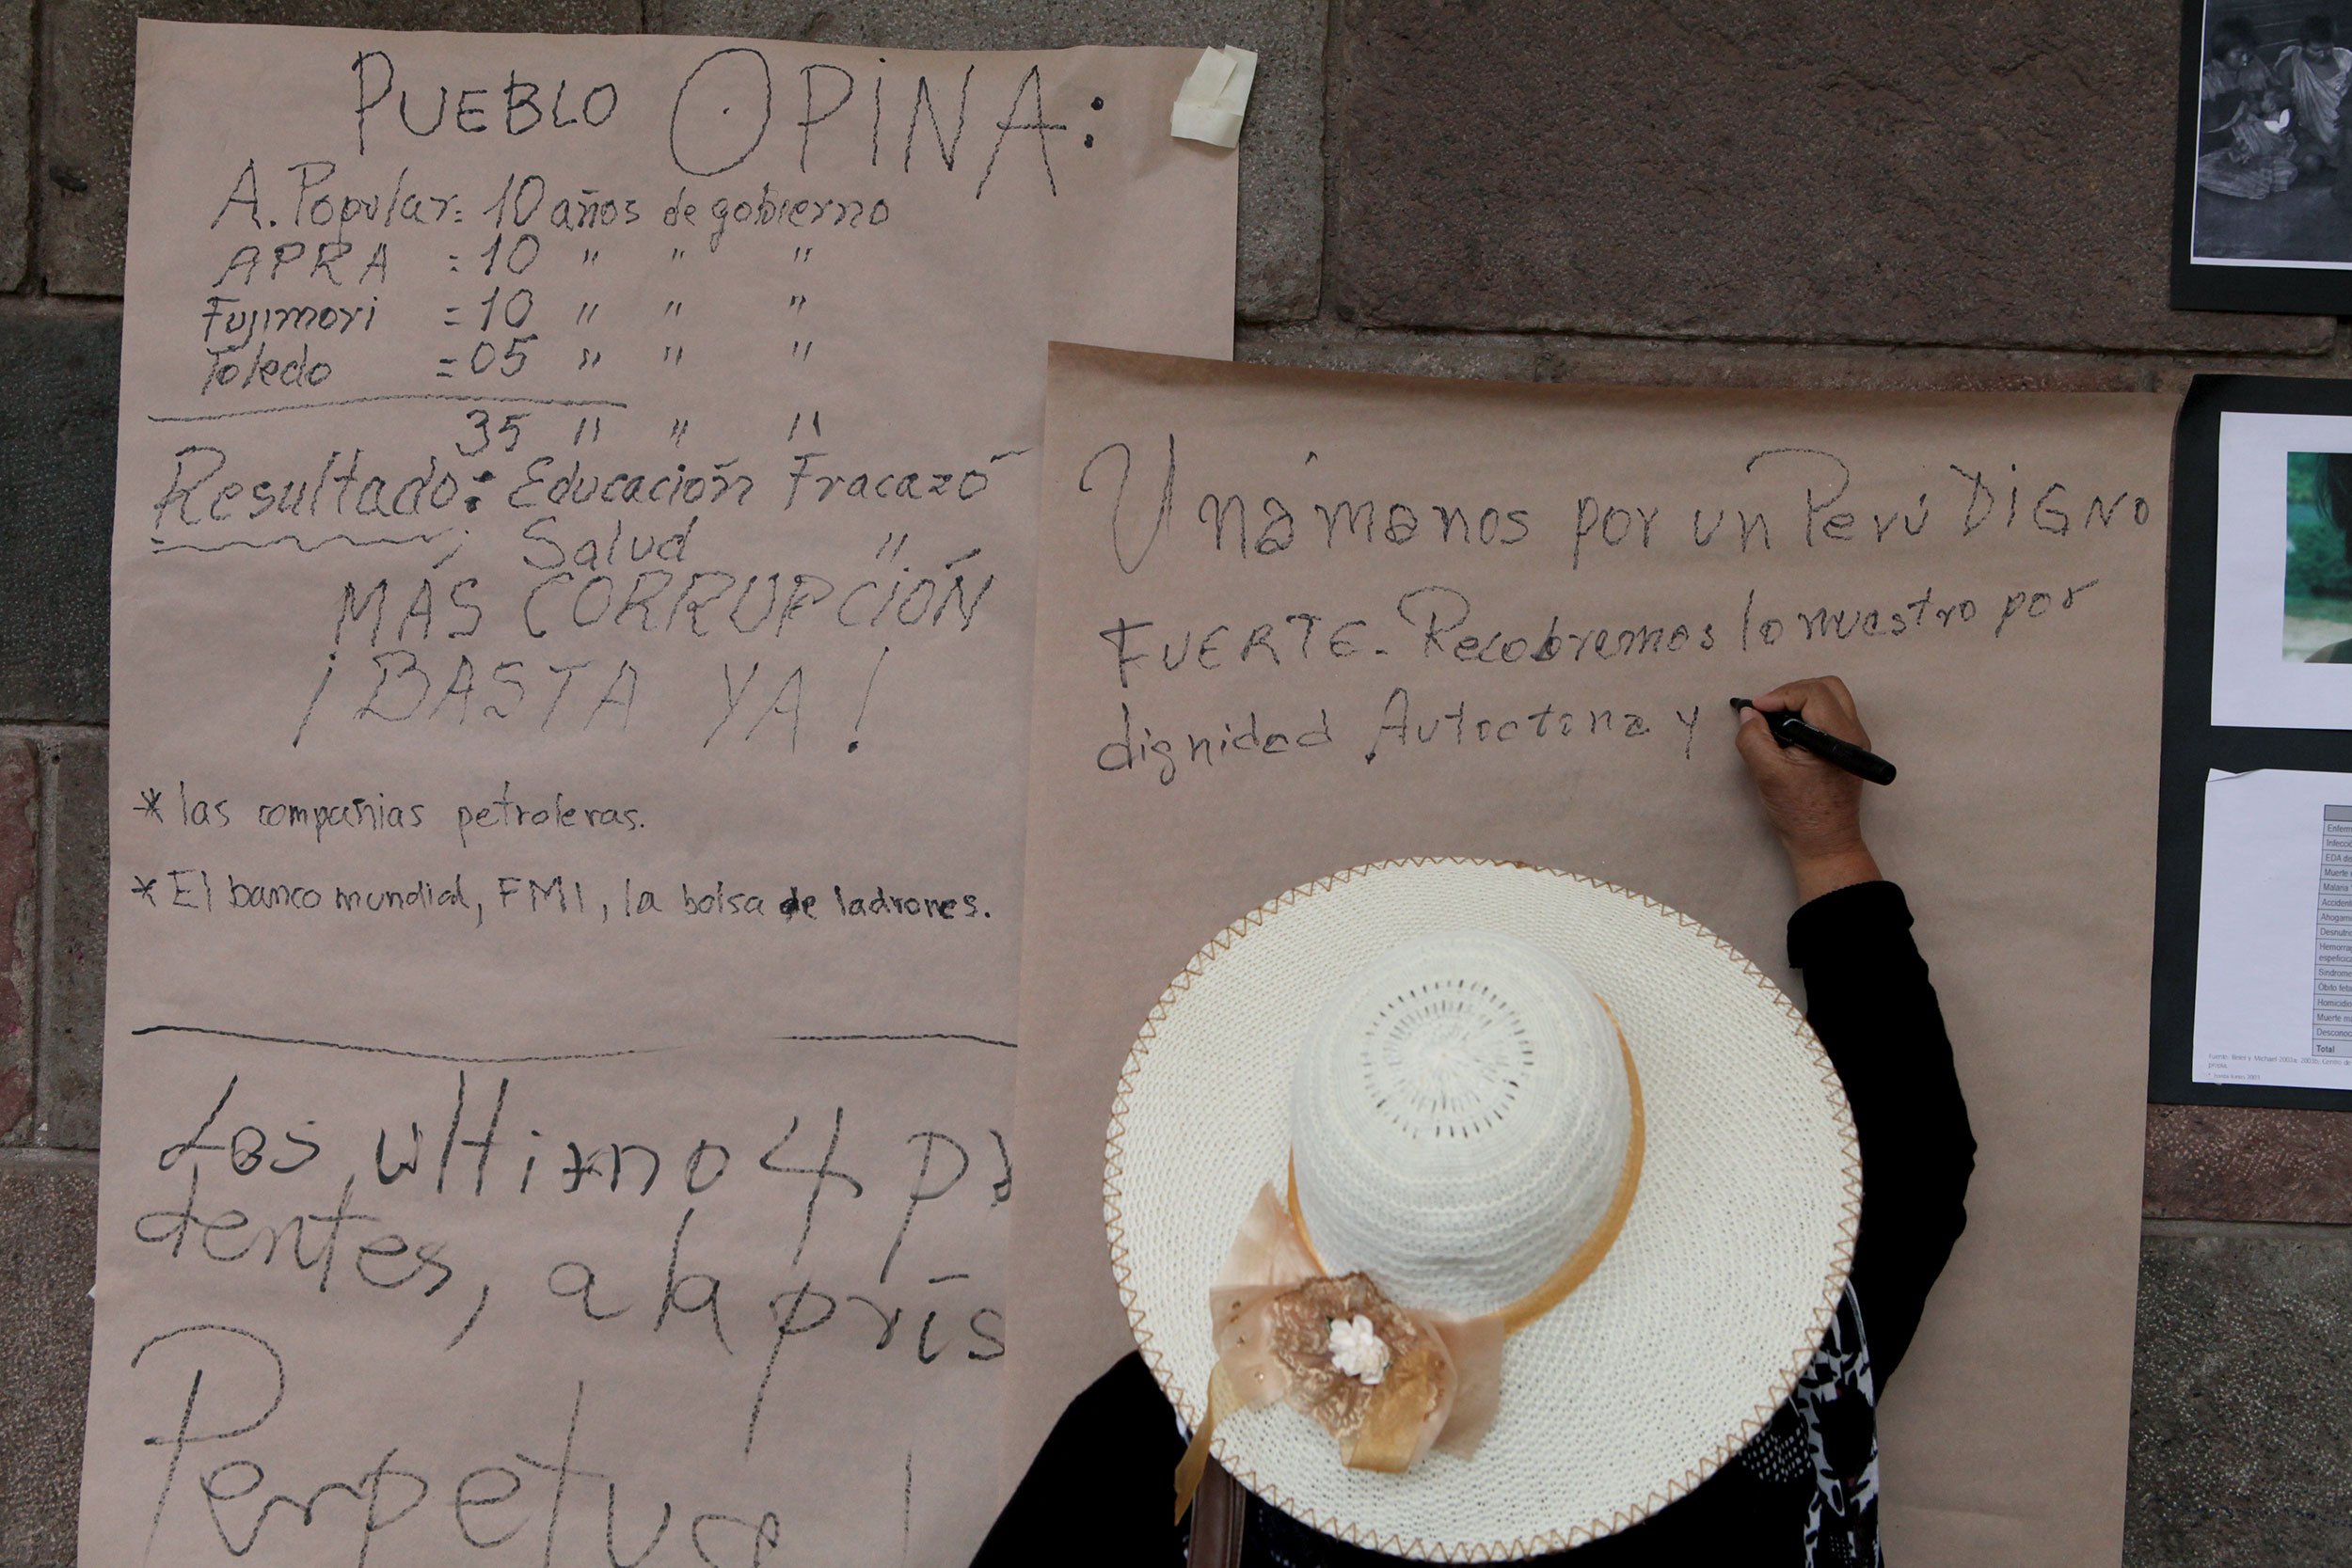 PUEBLO OPINA:
A. Popular= 10 años de gobierno
APRA = 10 " " "
Fujimori = 10 " " "
Toledo = 05 " " "
35 " " "
Resultado: Educación Fracazó
Salud "
MÁS CORRUPCIÓN
¡BASTA YA!
* las compañias petroleras.
* El banco mundial, FMI, la bolsa de ladrones.
Los ultimo 4 p
dentes, a la prís
Perpetua
Unámanos por un Perú DIGNO
FUERTE - Recobremos lo nuestro por
dignidad Autoctona y
Enferm
Infecció
EDA dis
Muerte
Malaria
Accident
Ahogam
Desnutric
Hemorrag
especifica
Síndrome
Óbito feta
Homicidio
Muerte ma
Desconoc
Total